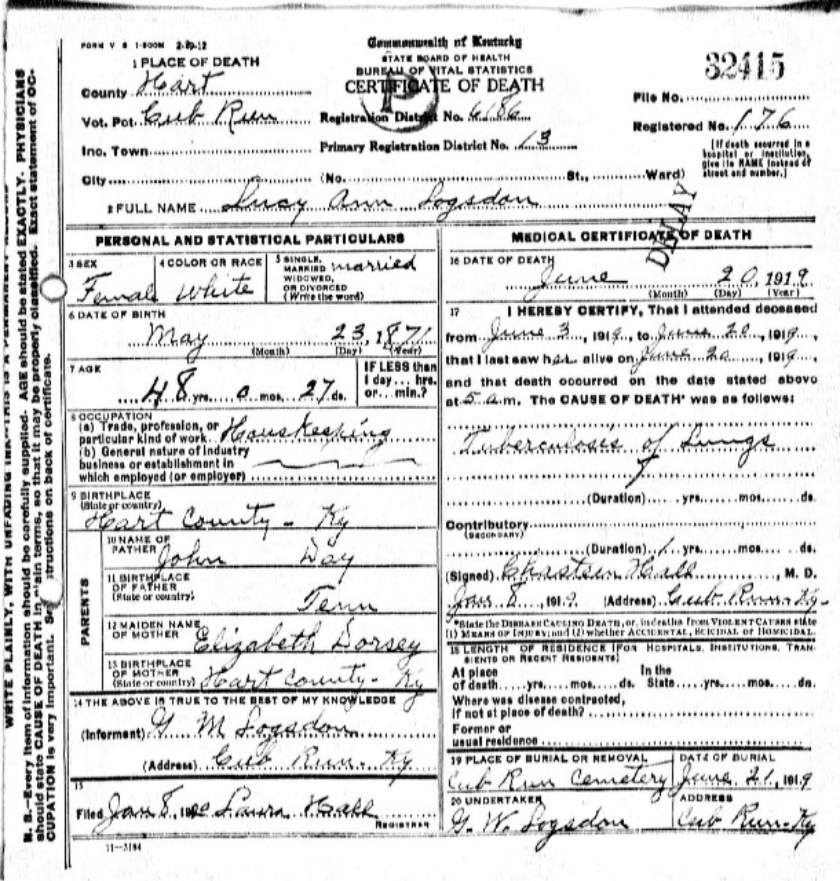 FORM V S 1-500M 2-29-12
Commonwealth of Kentucky
STATE BOARD OF HEALTH
BUREAU OF VITAL STATISTICS
CERTIFICATE OF DEATH
P
32415
1 PLACE OF DEATH
County Hart
Vot. Pct. Cub Run
Registration District No. 6186
File No.
Registered No. 176
Inc. Town
Primary Registration District No. 13
[If death occurred in a hospital or institution, give its NAME instead of street and number.]
City (No. St., Ward)
2 FULL NAME Lucy Ann Logsdon
DELAY
PERSONAL AND STATISTICAL PARTICULARS
3 SEX Female
4 COLOR OR RACE White
5 SINGLE, MARRIED WIDOWED, OR DIVORCED (Write the word) married
6 DATE OF BIRTH
May 23, 1871
(Month) (Day) (Year)
7 AGE
48 yrs. 0 mos. 27 ds.
IF LESS than 1 day... hrs. or... min.?
8 OCCUPATION
(a) Trade, profession, or particular kind of work Houskeeping
(b) General nature of industry business or establishment in which employed (or employer)
9 BIRTHPLACE
(State or country)
Hart County - Ky
PARENTS
10 NAME OF FATHER John Day
11 BIRTHPLACE OF FATHER (State or country) Tenn
12 MAIDEN NAME OF MOTHER Elizabeth Dorsey
13 BIRTHPLACE OF MOTHER (State or country) Hart County - Ky
14 THE ABOVE IS TRUE TO THE BEST OF MY KNOWLEDGE
(Informent) G M Logsdon
(Address) Cub Run - Ky
15
Filed Jan 8, Laura Hall
REGISTRAR
11-3184
MEDICAL CERTIFICATE OF DEATH
16 DATE OF DEATH
June 20, 1919
(Month) (Day) (Year)
17 I HEREBY CERTIFY, That I attended deceased
from June 3, 1919, to June 20, 1919,
that I last saw her alive on June 20, 1919,
and that death occurred on the date stated above
at 5 a.m. The CAUSE OF DEATH* was as follows:
Tuberculosis of Lungs
(Duration) yrs. mos. ds.
Contributory
(SECONDARY)
(Duration) 1 yrs. mos. ds.
(Signed) Chasteen Hall, M. D.
Jan 8, 1919 (Address) Cub Run - Ky
*State the DISEASE CAUSING DEATH, or, in deaths from VIOLENT CAUSES state
(1) MEANS OF INJURY; and (2) whether ACCIDENTAL, SUICIDAL or HOMICIDAL.
18 LENGTH OF RESIDENCE (FOR HOSPITALS, INSTITUTIONS, TRANSIENTS OR RECENT RESIDENTS)
At place of death yrs. mos. ds. In the State yrs. mos. ds.
Where was disease contracted,
if not at place of death?
Former or
usual residence
19 PLACE OF BURIAL OR REMOVAL
Cub Run Cemetery
DATE OF BURIAL
June 21, 1919
20 UNDERTAKER
G. W. Logsdon
ADDRESS
Cub Run - Ky
WRITE PLAINLY, WITH UNFADING INK—THIS IS A PERMANENT RECORD
N. B.—Every item of information should be carefully supplied. AGE should be stated EXACTLY. PHYSICIANS
should state CAUSE OF DEATH in plain terms, so that it may be properly classified. Exact statement of OC-
CUPATION is very important. See instructions on back of certificate.